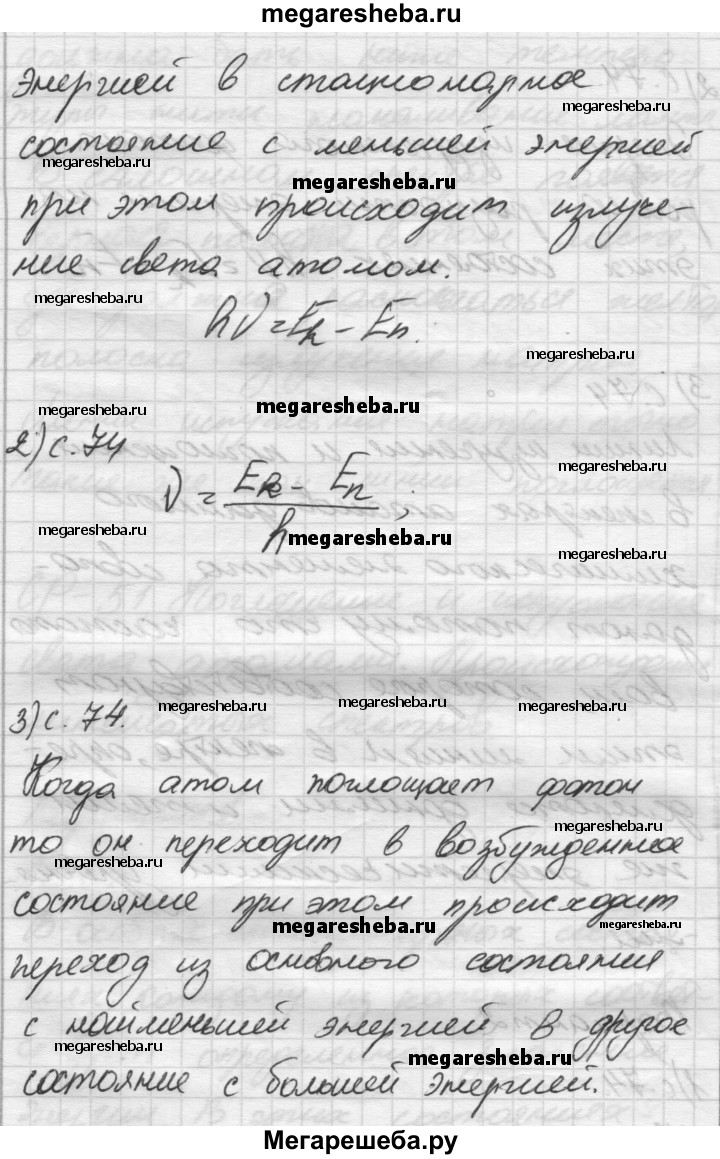 megaresheba.ru
энергией в стационарное
megaresheba.ru
состояние с меньшей энергией
megaresheba.ru
megaresheba.ru
при этом происходит излуче-
ние света атомом.
megaresheba.ru
hν = Ek - En.
megaresheba.ru
megaresheba.ru
2) с. 74
megaresheba.ru
ν = Ek - En / h ;
megaresheba.ru
megaresheba.ru
megaresheba.ru
3) с. 74.
megaresheba.ru
megaresheba.ru
megaresheba.ru
Когда атом поглощает фотон
megaresheba.ru
то он переходит в возбужденное
megaresheba.ru
состояние при этом происходит
megaresheba.ru
megaresheba.ru
переход из основного состояния
с наименьшей энергией в другое
megaresheba.ru
megaresheba.ru
состояние с большей энергией.
Мегарешеба.ру